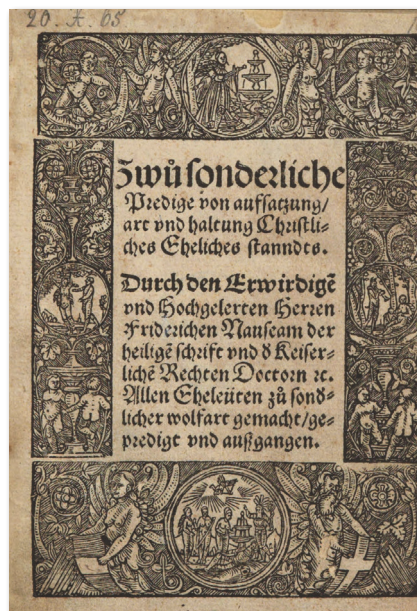 20. X. 65
Zwů sonderliche
Predige von auffsatzung/
art vnd haltung Christli-
ches Eheliches stanndts.
Durch den Erwirdigẽ
vnd Hochgelerten Herren
Friderichen Nauseam der
heiligẽ schrift vnd d̕ Keiser-
lichẽ Rechten Doctorn ꝛc.
Allen Eheleüten zů sond̕-
licher wolfart gemacht/ge-
predigt vnd außgangen.